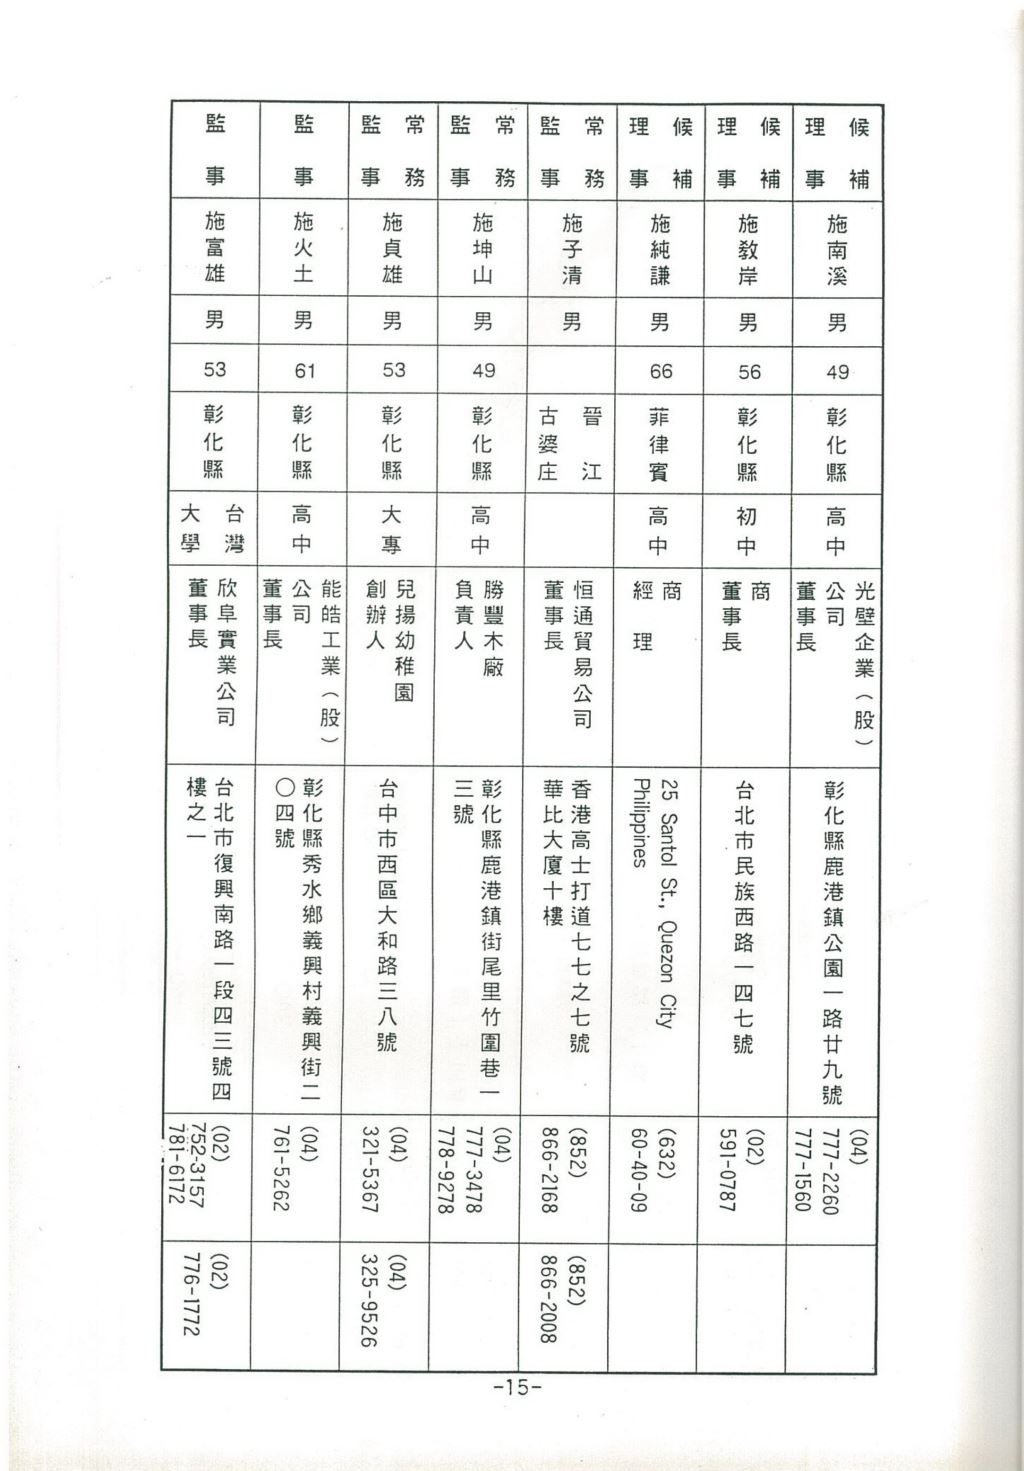 候補
理事
施南溪
男
49
彰化縣
高中
光壁企業（股）
公司
董事長
彰化縣鹿港鎮公園一路廿九號
(04)
777-2260
777-1560
候補
理事
施教岸
男
56
彰化縣
初中
商
董事長
台北市民族西路一四七號
(02)
591-0787
候補
理事
施純謙
男
66
菲律賓
高中
商
經理
25 Santol St., Quezon City
Philippines
(632)
60-40-09
常務
監事
施子清
男
晉江
古婆庄
恒通貿易公司
董事長
香港高士打道七七之七號
華比大廈十樓
(852)
866-2168
(852)
866-2008
常務
監事
施坤山
男
49
彰化縣
高中
勝豐木廠
負責人
彰化縣鹿港鎮街尾里竹圍巷一
三號
(04)
777-3478
778-9278
常務
監事
施貞雄
男
53
彰化縣
大專
兒揚幼稚園
創辦人
台中市西區大和路三八號
(04)
321-5367
(04)
325-9526
監事
施火土
男
61
彰化縣
高中
能皓工業（股）
公司
董事長
彰化縣秀水鄉義興村義興街二
〇四號
(04)
761-5262
監事
施富雄
男
53
彰化縣
台灣
大學
欣阜實業公司
董事長
台北市復興南路一段四三號四
樓之一
(02)
752-3157
781-6172
(02)
776-1772
-15-